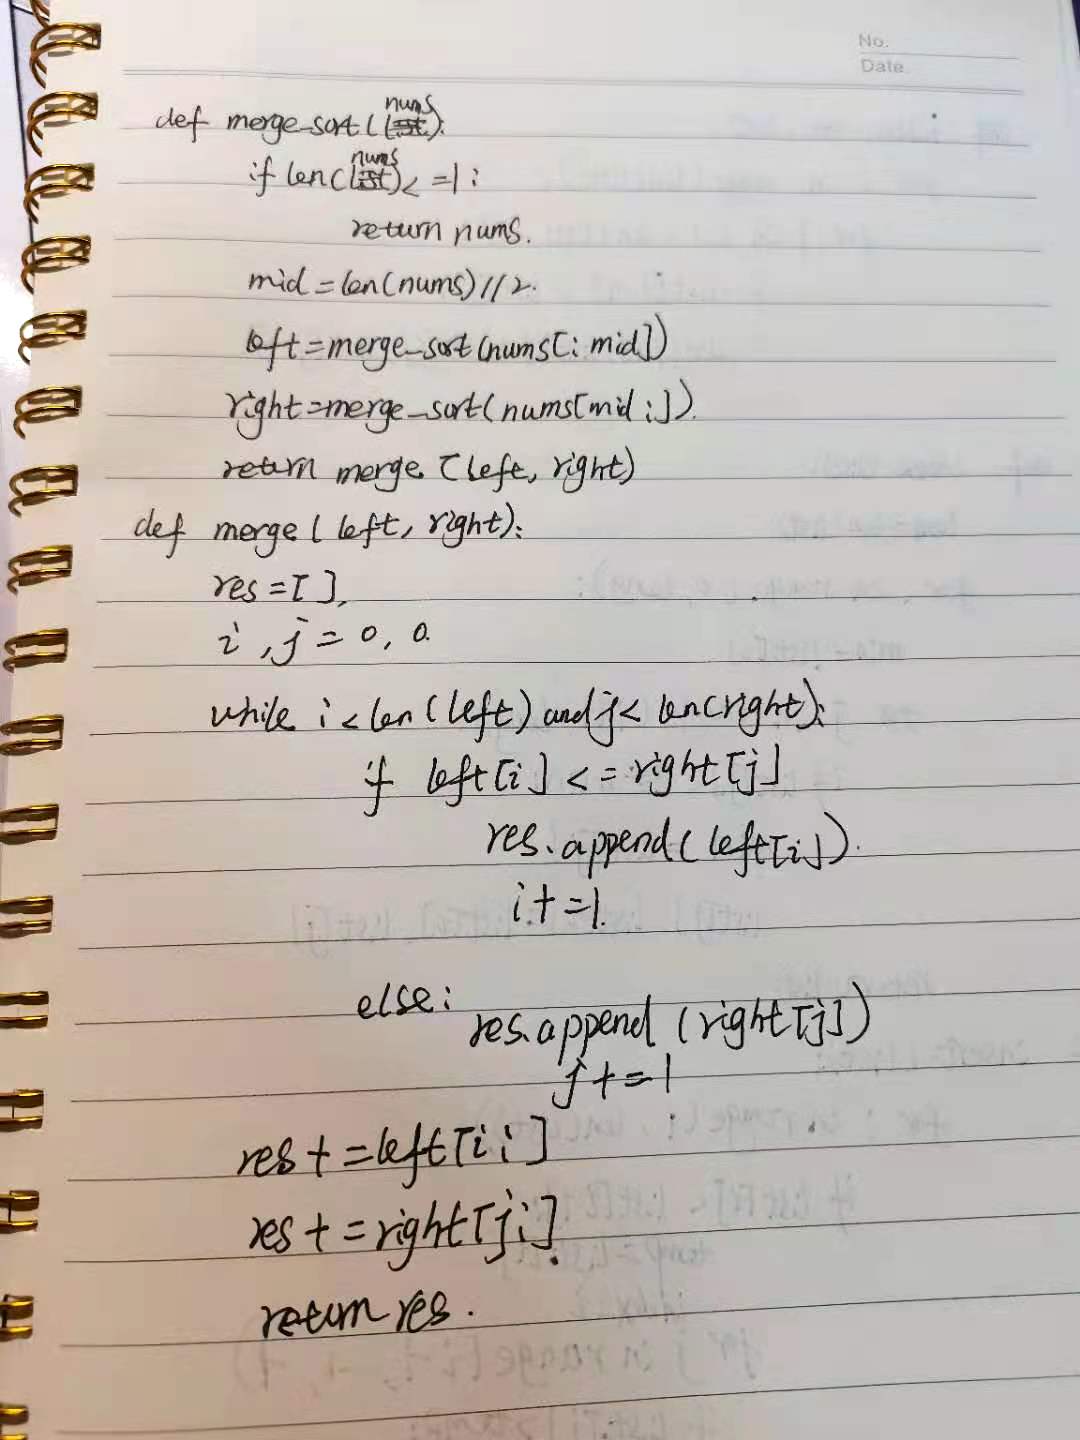 No.
Date
def merge_sort(nums):
if len(nums)<=1:
return nums.
mid=len(nums)//2.
left=merge_sort(nums[:mid])
right=merge_sort(nums[mid:]).
return merge [left, right)
def merge(left, right):
res=[].
i,j=0,0.
while i<len(left) and j<len(right):
if left[i]<=right[j]
res.append(left[i]).
i+=1.
else:
res.append(right[j])
j+=1
res+=left[i:]
res+=right[j:].
return res.